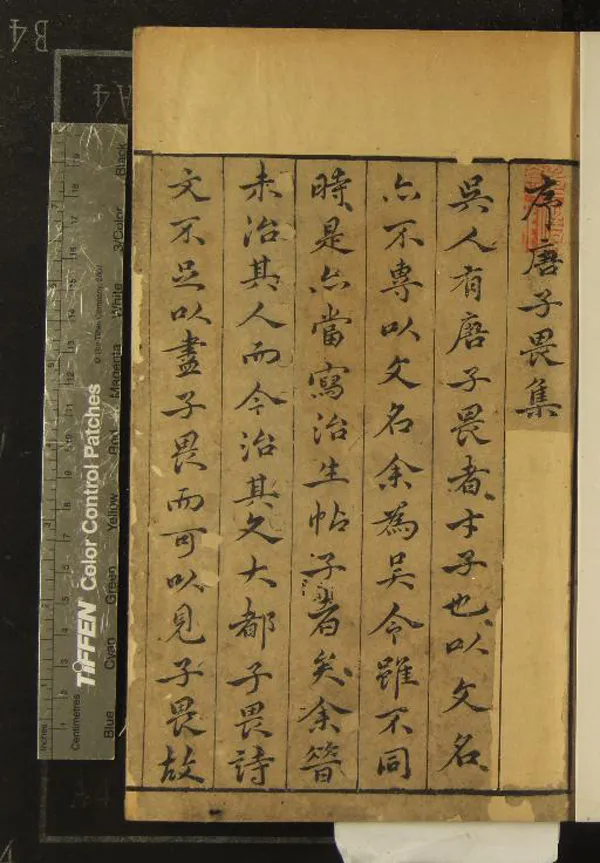 序唐子畏集
吳人有唐子畏者才子也以文名
亦不專以文名余為吳令雖不同
時是亦當寫治生帖子者矣余昔
未治其人而今治其文大都子畏詩
文不足以盡子畏而可以見子畏故
B4
A4
TIFFEN Color Control Patches
© The Tiffen Company, 2007
Blue Cyan Green Yellow Red Magenta White 3/Color Black
Inches
Centimetres